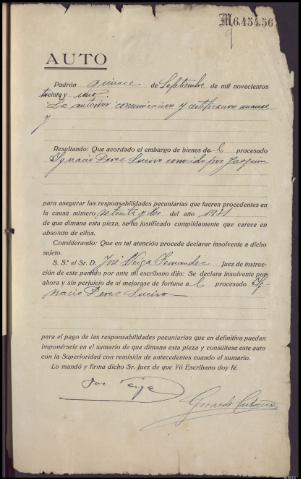 M6.454.56
9
AUTO
Padrón quince de Septiembre de mil novecientos
treinta y uno
La anterior comunicación y certificación unanse
y
Resultando: Que acordado el embargo de bienes del procesado
Ignacio Perez conocido por Joaquin
para asegurar las responsabilidades pecuniarias que fueren procedentes en
la causa número setenta y dos del año 1931
de que dimana esta pieza, se ha justificado cumplidamente que carece en
absoluto de ellos.
Considerando: Que en tal atención procede declarar insolvente a dicho
sujeto.
S. Sª el Sr. D. José Veiga Fernandez Juez de instruc-
ción de este partido por ante mí escribano dijo: Se declara insolvente por
ahora y sin perjuicio de si mejorase de fortuna al procesado Ig-
nacio Perez
para el pago de las responsabilidades pecuniarias que en definitiva puedan
imponérsele en el sumario de que dimana esta pieza y consúltese este auto
con la Superioridad con remisión de antecedentes cuando el sumario.
Lo mandó y firma dicho Sr. juez de que Yó Escribano doy fé.
José Veiga
Gerardo